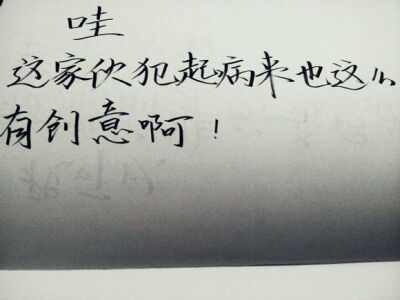 哇
这家伙犯起病来也这么
有创意啊！